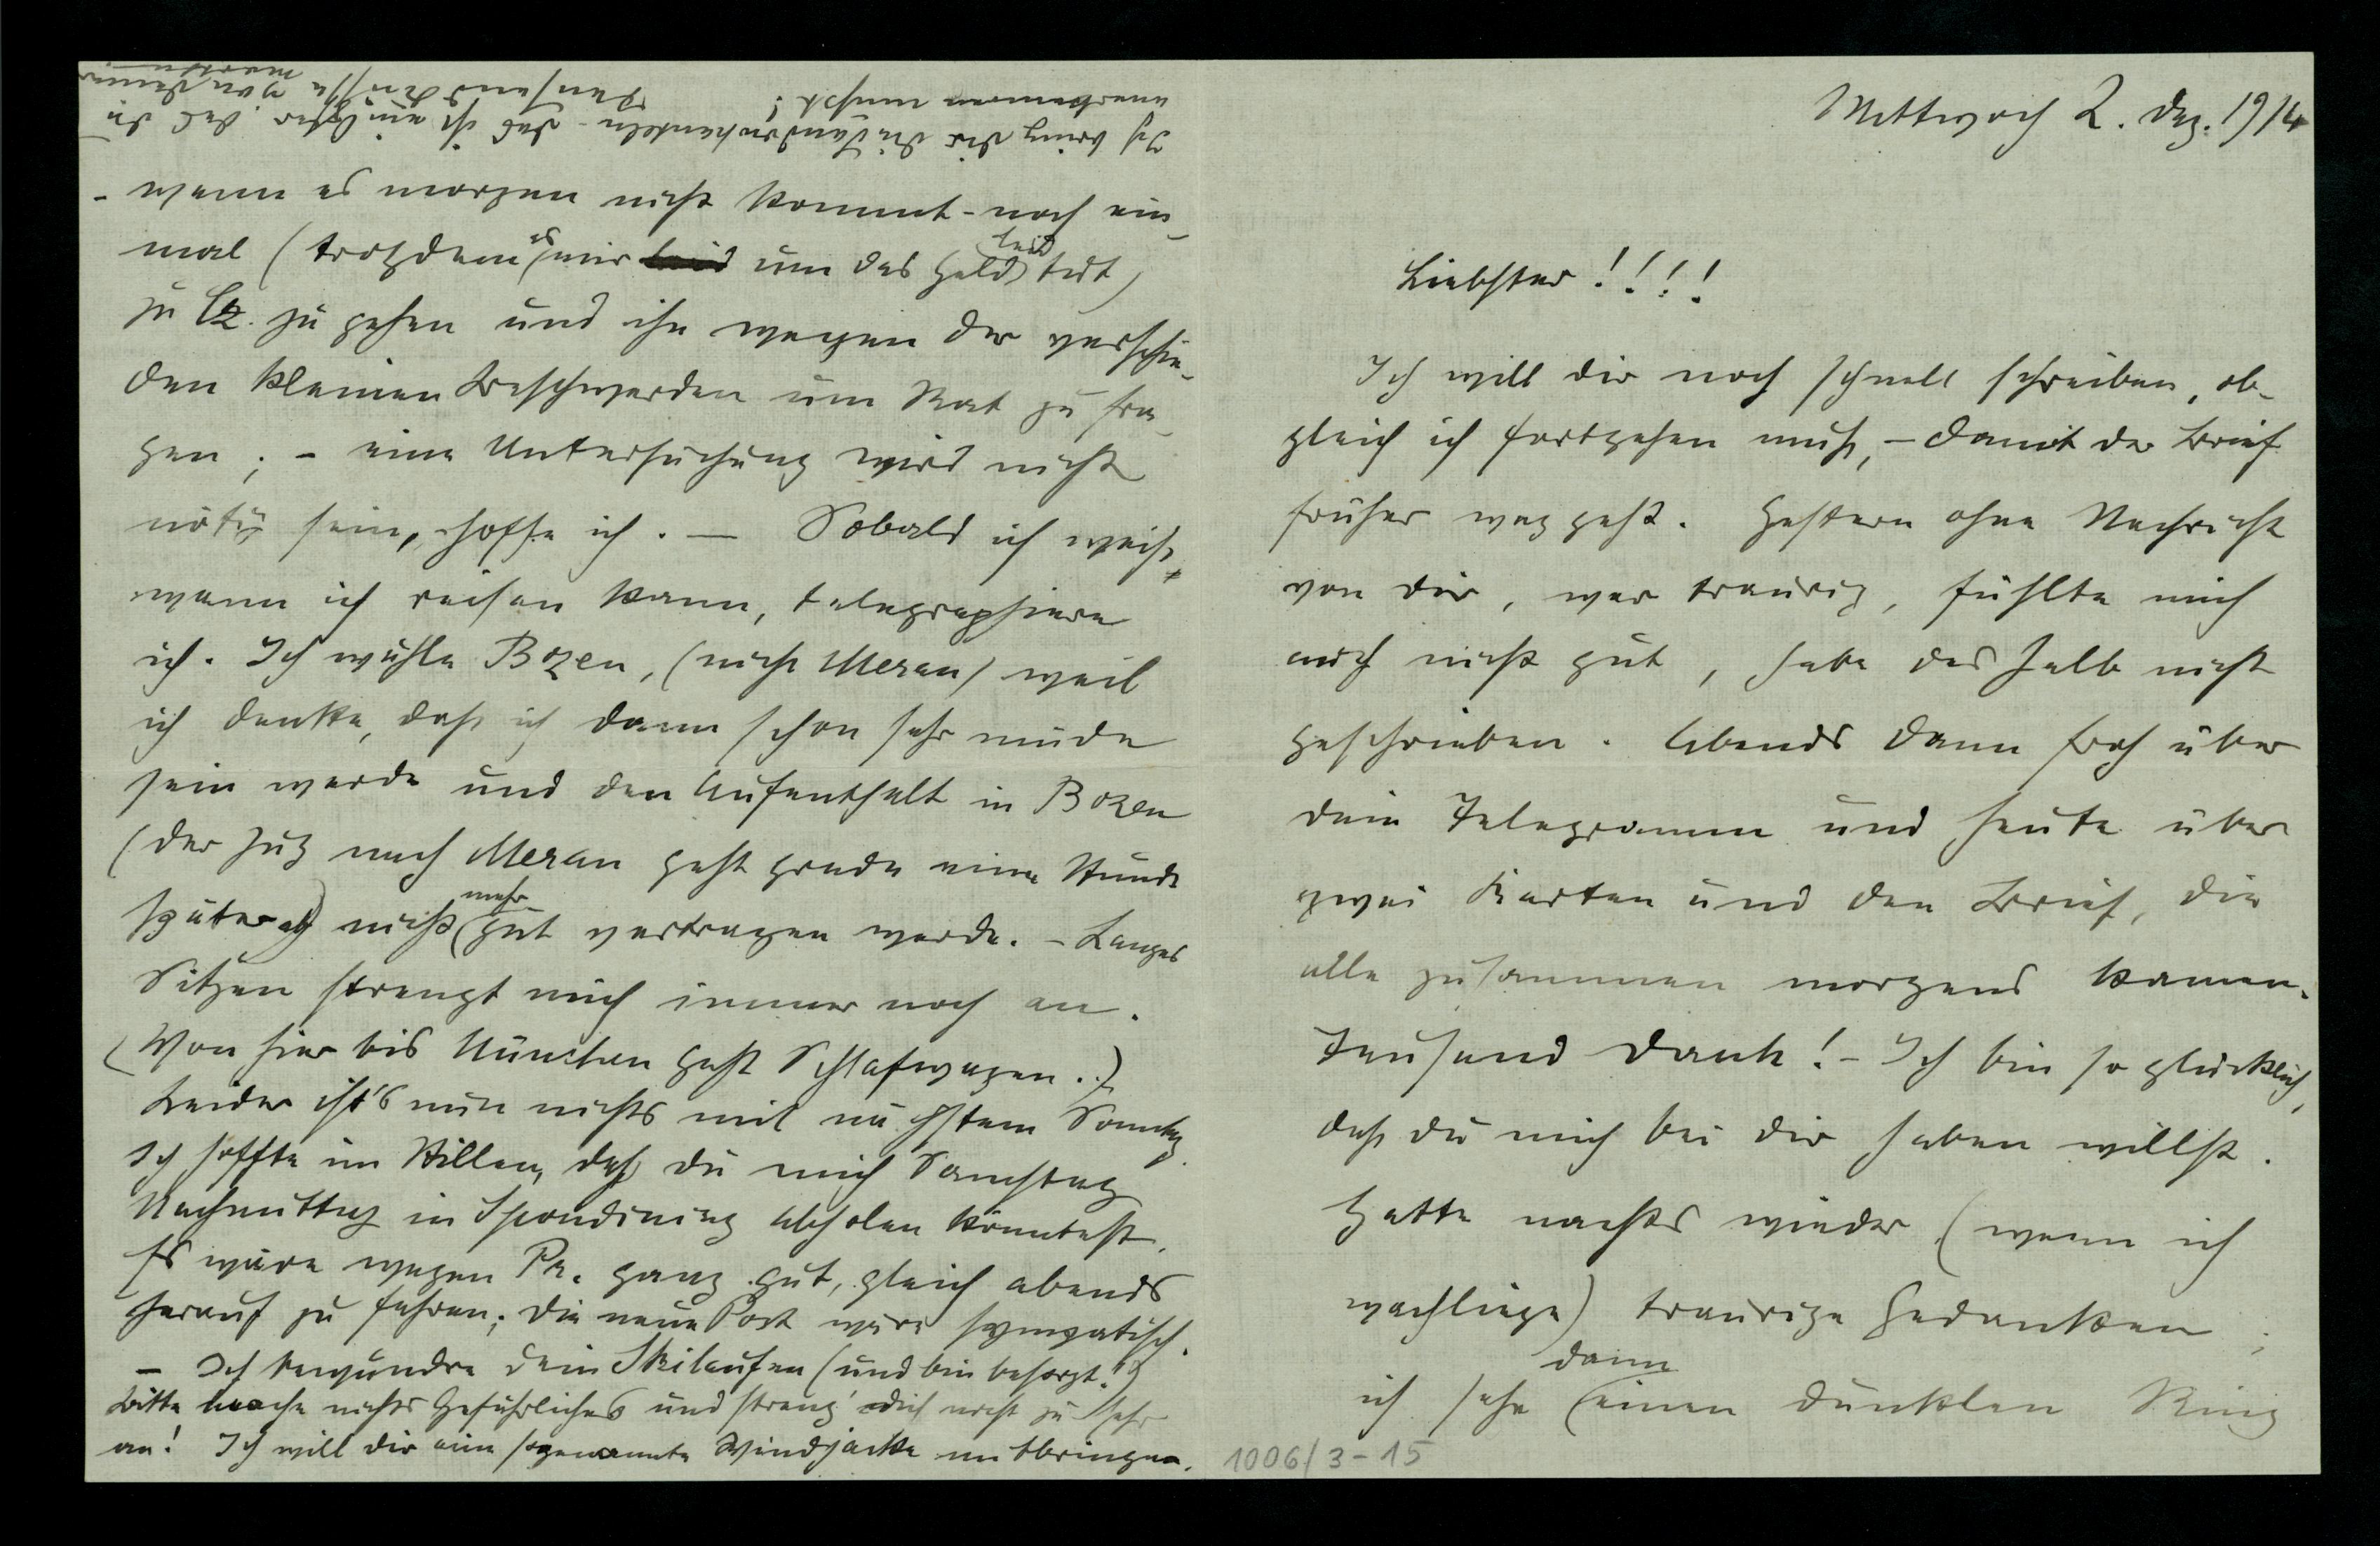 Mittwoch 2. Dez. 1914
Liebster!!!!
Ich will dir noch schnell schreiben, ob-
gleich ich fortgehen muß, – damit der Brief
früher weggeht. Gestern ohne Nachricht
von dir, war traurig, fühlte mich
auch nicht gut, habe deshalb nicht
geschrieben. Abends dann froh über
dein Telegramm und heute über
zwei Karten und den Brief, die
alle zusammen morgens kamen.
Tausend Dank! – Ich bin so glücklich,
daß du mich bei dir haben willst.
Hatte nachts wieder (wenn ich
wachliege) traurige Gedanken;
ich sehe dann einen dunklen Ring
1006/3-15
– wenn es morgen nicht kommt – noch ein-
mal (trotzdem es mir um das Geld leid tut)
zu gehen und ihn wegen der verschie-
den kleinen Beschwerden um Rat zu fra-
gen; – eine Untersuchung wird nicht
nötig sein, hoffe ich. – Sobald ich weiß,
wann ich reisen kann, telegraphiere
ich. Ich wähle Bozen, (nicht Meran) weil
ich denke, daß ich dann schon sehr müde
sein werde und den Aufenthalt in Bozen
(der Zug nach Meran geht grade eine Stunde
später ab) nicht mehr gut vertragen werde. – Langes
Sitzen strengt mich immer noch an.
(Von hier bis München geht Schlafwagen.)
Leider ist's nun nichts mit nächstem Sonntag.
Ich hoffte im Stillen, daß du mich Samstag
Nachmittag in Spondinig abholen könntest.
Es wäre wegen Pr. ganz gut, gleich abends
herauf zu fahren; die neue Post wäre sympatisch.
– Ich bewundre dein Skilaufen (und bin besorgt!)
Bitte mache nichts Gefährliches und streng' dich nicht zu sehr
an! Ich will dir eine sogenannte Windjacke mitbringen.
Ich bring dir die – das ist sicher, daß du
anerkennen mußt!
Tausend Küsse von deiner
Martha